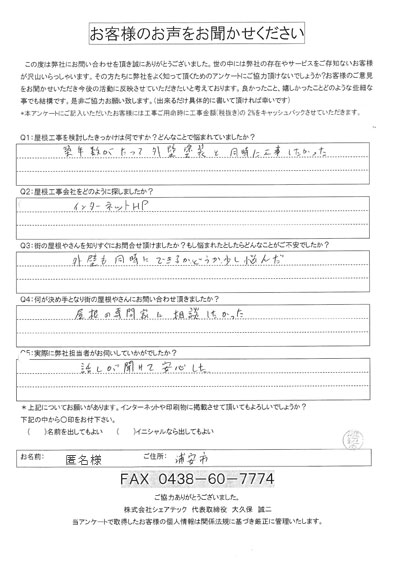 お客様のお声をお聞かせください
この度は弊社にお問い合わせを頂き誠にありがとうございます。世の中には弊社の存在やサービスをご存知ないお客様
が沢山いらっしゃいます。その方たちに弊社をよく知って頂くためのアンケートにご協力頂けないでしょうか?お客様のご意見
をお聞かせいただき今後の活動に反映させていただきたいと考えております。良かったこと、嬉しかったことどのような些細な
事でも結構です。是非ご協力お願い致します。(出来るだけ具体的に書いて頂ければ幸いです)
*本アンケートにご記入いただいたお客様には工事ご成約時に工事金額(税抜き)の2%をキャッシュバックさせていただきます。
Q1:屋根工事を検討したきっかけは何ですか?どんなことで悩まれていましたか?
築年数がたって外壁塗装と同時に工事したかった
Q2:屋根工事会社をどのように探しましたか?
インターネットHP
Q3:街の屋根やさんを知りすぐにお問合せ頂けましたか?もし悩まれたとしたらどんなことがご不安でしたか?
外壁も同時にできるかどうか少し悩んだ
Q4:何が決め手となり街の屋根やさんにお問い合わせ頂きましたか?
屋根の専門家に相談したかった
Q5:実際に弊社担当者がお伺いしていかがでしたか?
話しが聞けて安心した
*上記についてお願いがあります。インターネットや印刷物に掲載させて頂いてもよろしいでしょうか?
下記の中から〇印をお付下さい。
( )名前を出してもよい ( )イニシャルなら出してもよい
お名前: 匿名様 ご住所: 浦安市
FAX 0438-60-7774
ご協力ありがとうございました。
株式会社シェアテック 代表取締役 大久保 誠二
当アンケートで取得したお客様の個人情報は関係法規に基づき厳正に管理いたします。